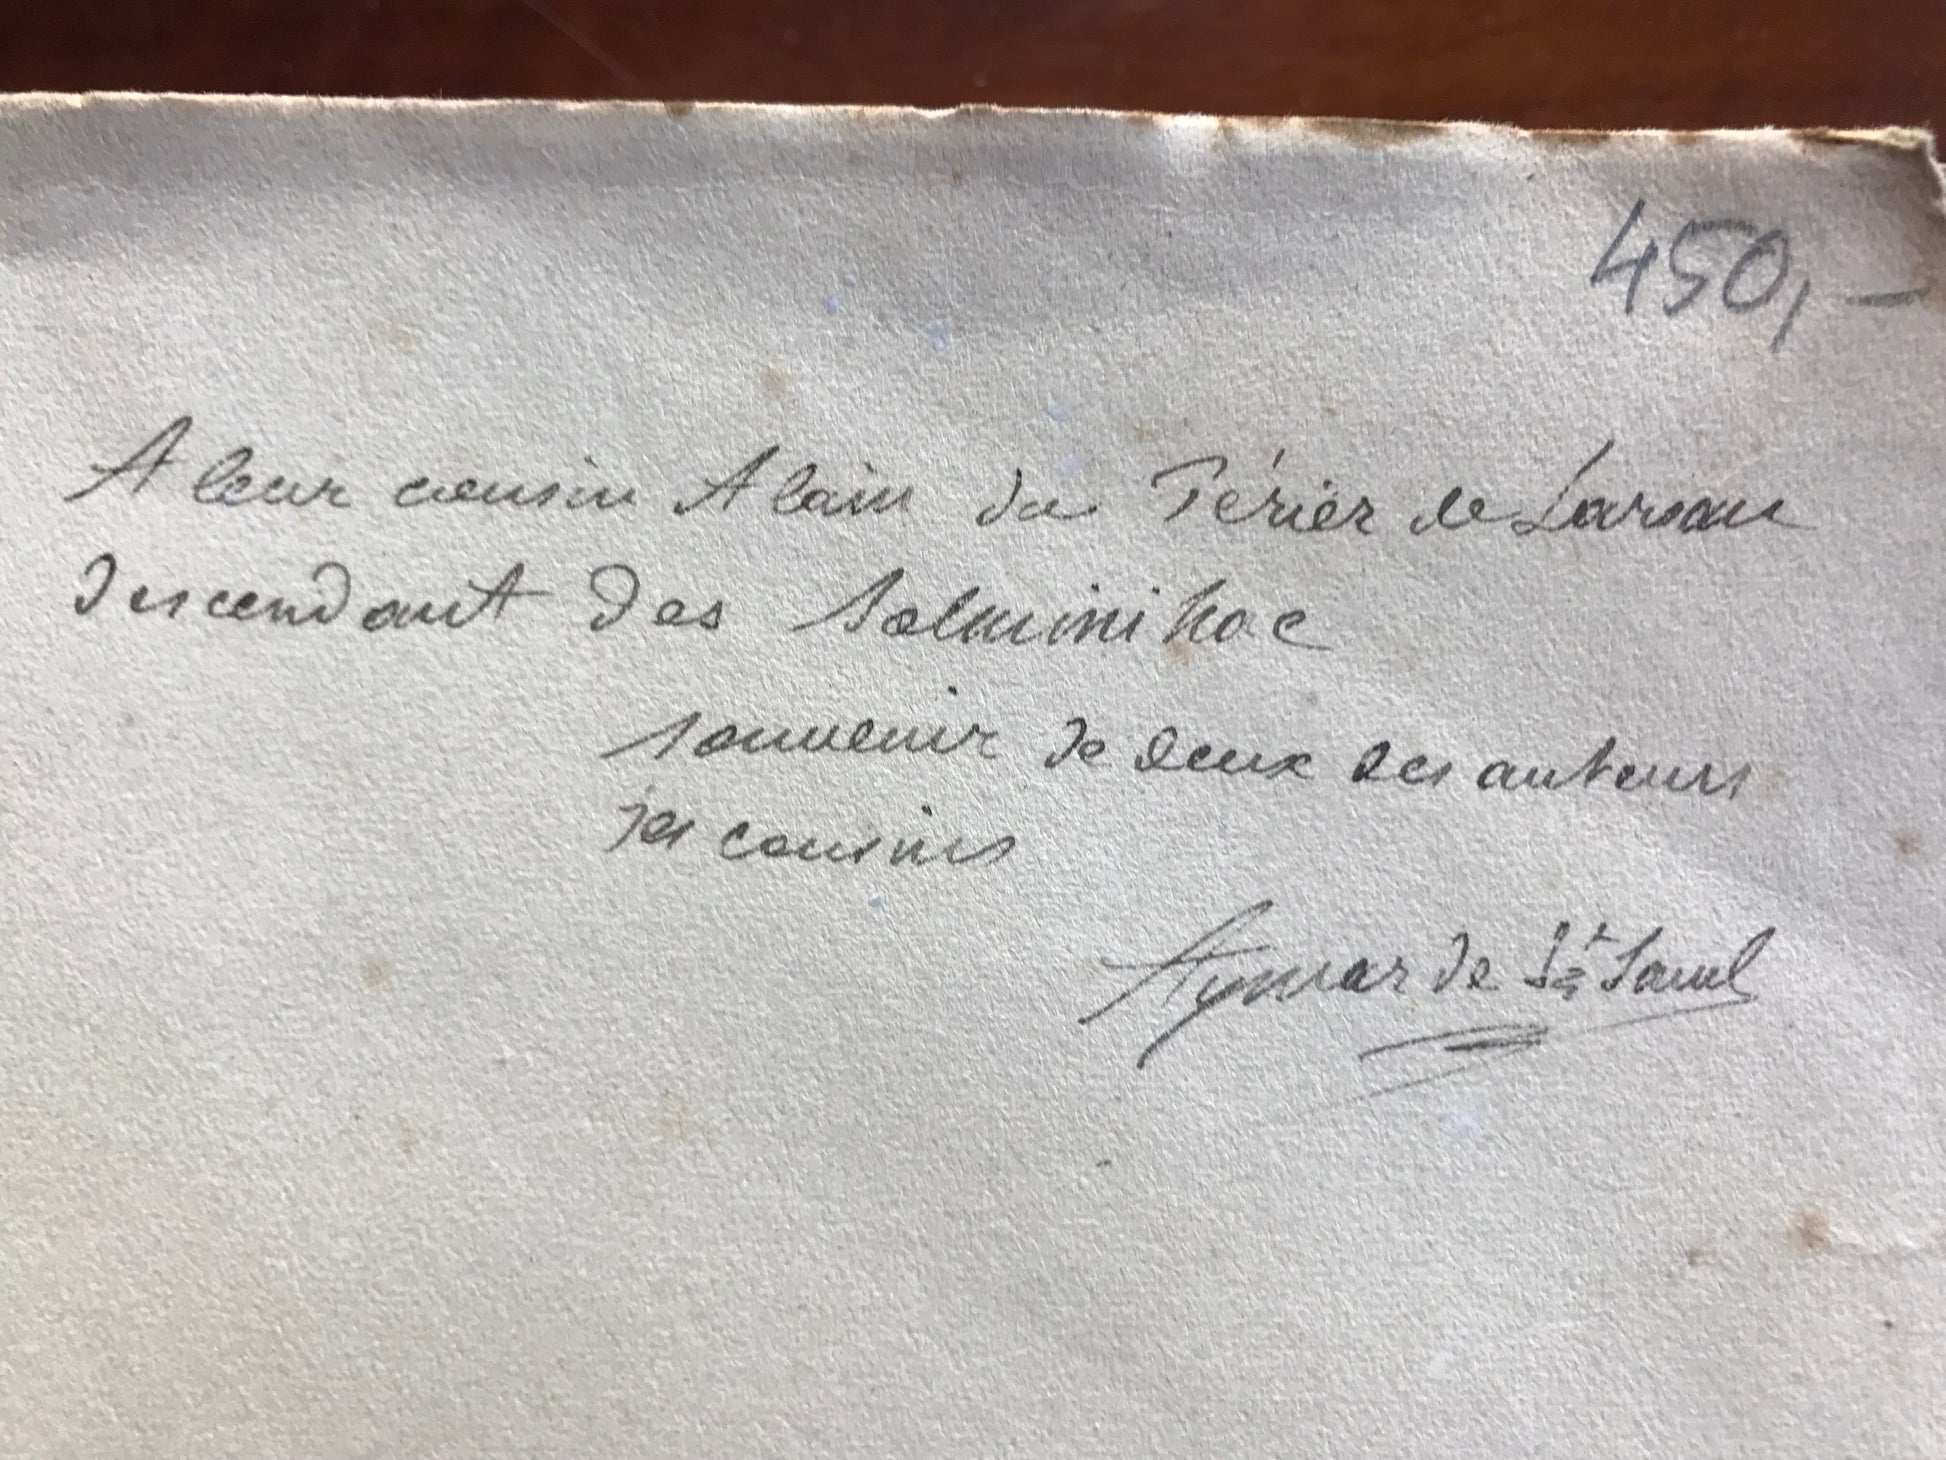 450,-
A leur cousin Alain du Périer de Larsan
descendant des Solminihac
souvenir de deux des auteurs
ses cousins
Aymar de St Saud